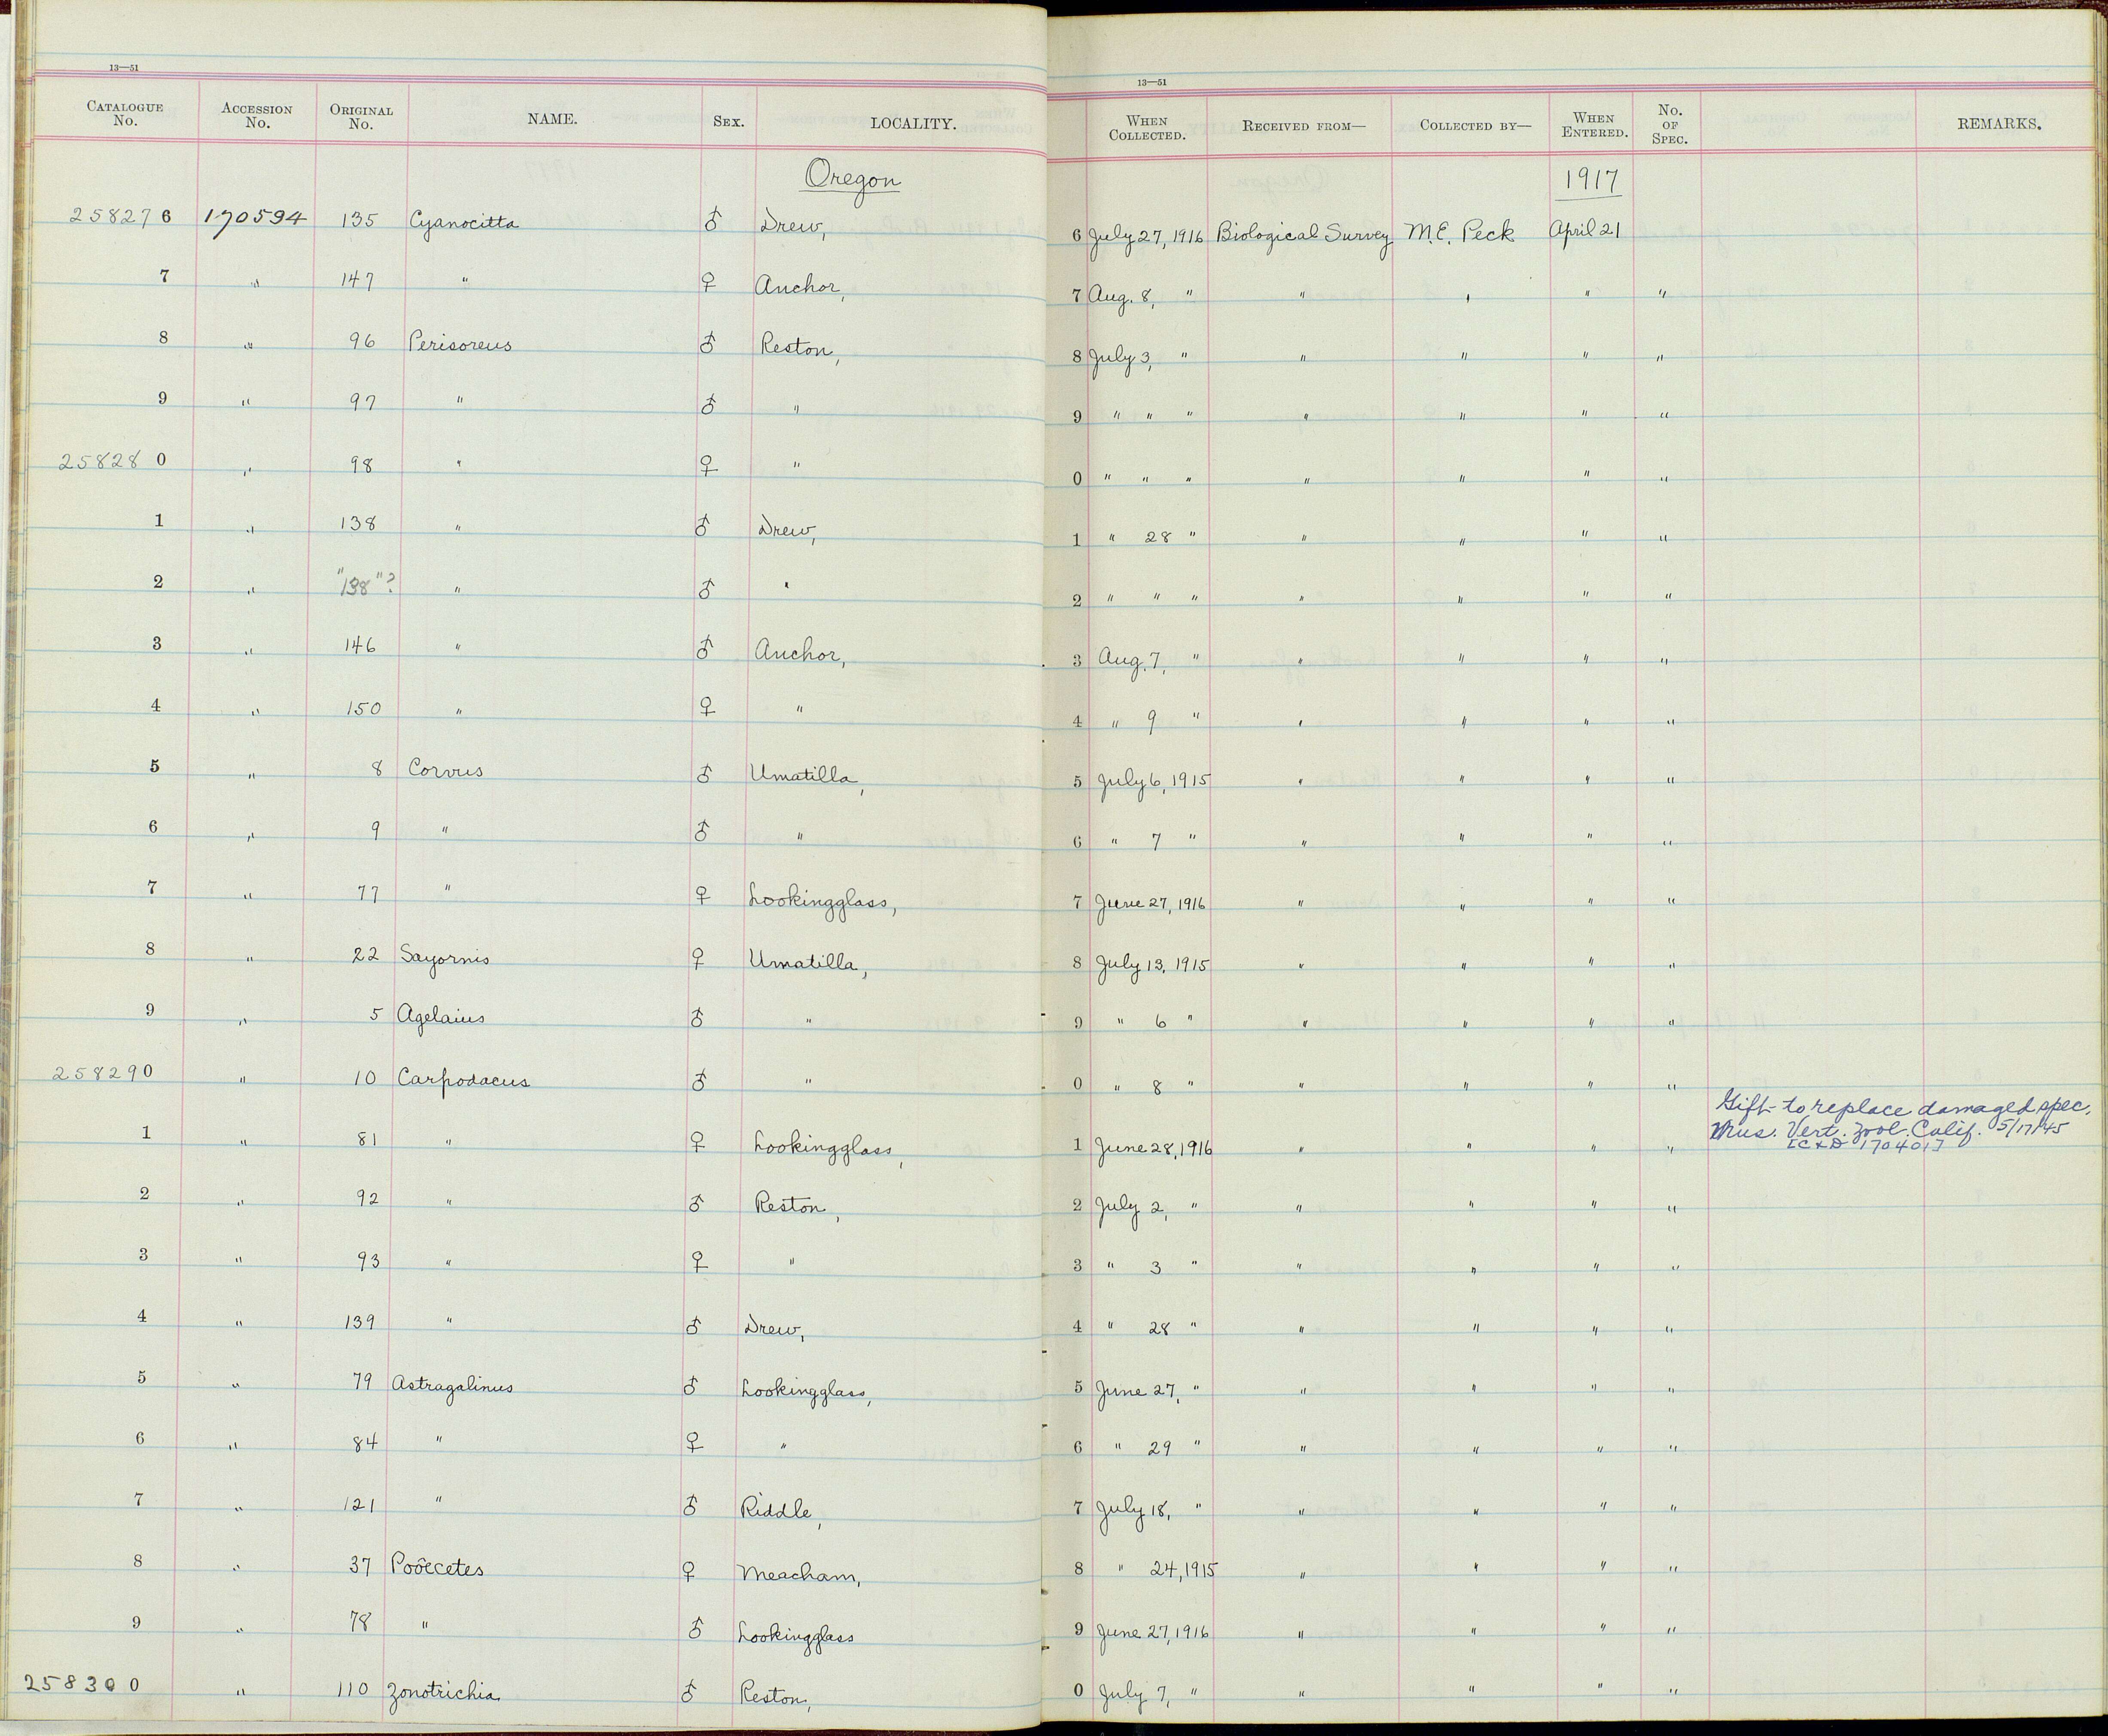 13—51
13—51
CATALOGUE No. ACCESSION No. ORIGINAL No. NAME. SEX. LOCALITY. WHEN COLLECTED. RECEIVED FROM— COLLECTED BY— WHEN ENTERED. No. OF SPEC. REMARKS.
Oregon 1917
258276 170594 135 Cyanocitta ♂ Drew, 6 July 27, 1916 Biological Survey M.E. Peck April 21
7 " 147 " ♀ Anchor, 7 Aug. 8, " " " " "
8 " 96 Perisoreus ♂ Reston, 8 July 3, " " " " "
9 " 97 " ♂ " 9 " " " " " " "
258280 " 98 " ♀ " 0 " " " " " " "
1 " 138 " ♂ Drew, 1 " 28 " " " " "
2 " "138"? " ♂ " 2 " " " " " " "
3 " 146 " ♂ Anchor, 3 Aug. 7, " " " " "
4 " 150 " ♀ " 4 " 9 " " " " "
5 " 8 Corvus ♂ Umatilla, 5 July 6, 1915 " " " "
6 " 9 " ♂ " 6 " 7 " " " " "
7 " 77 " ♀ Lookingglass, 7 June 27, 1916 " " " "
8 " 22 Sayornis ♀ Umatilla, 8 July 13, 1915 " " " "
9 " 5 Agelaius ♂ " 9 " 6 " " " " "
258290 " 10 Carpodacus ♂ " 0 " 8 " " " " "
Gift to replace damaged spec.
1 " 81 " ♀ Lookingglass, 1 June 28, 1916 " " " " Mus. Vert. Zool. Calif. 5/17/45
[C&D 170401]
2 " 92 " ♂ Reston, 2 July 2, " " " " "
3 " 93 " ♀ " 3 " 3 " " " " "
4 " 139 " ♂ Drew, 4 " 28 " " " " "
5 " 79 Astragalinus ♂ Lookingglass, 5 June 27, " " " " "
6 " 84 " ♀ " 6 " 29 " " " " "
7 " 121 " ♂ Riddle, 7 July 18, " " " " "
8 " 37 Poöecetes ♀ Meacham, 8 " 24, 1915 " " " "
9 " 78 " ♂ Lookingglass 9 June 27, 1916 " " " "
258300 " 110 Zonotrichia ♂ Reston, 0 July 7, " " " " "